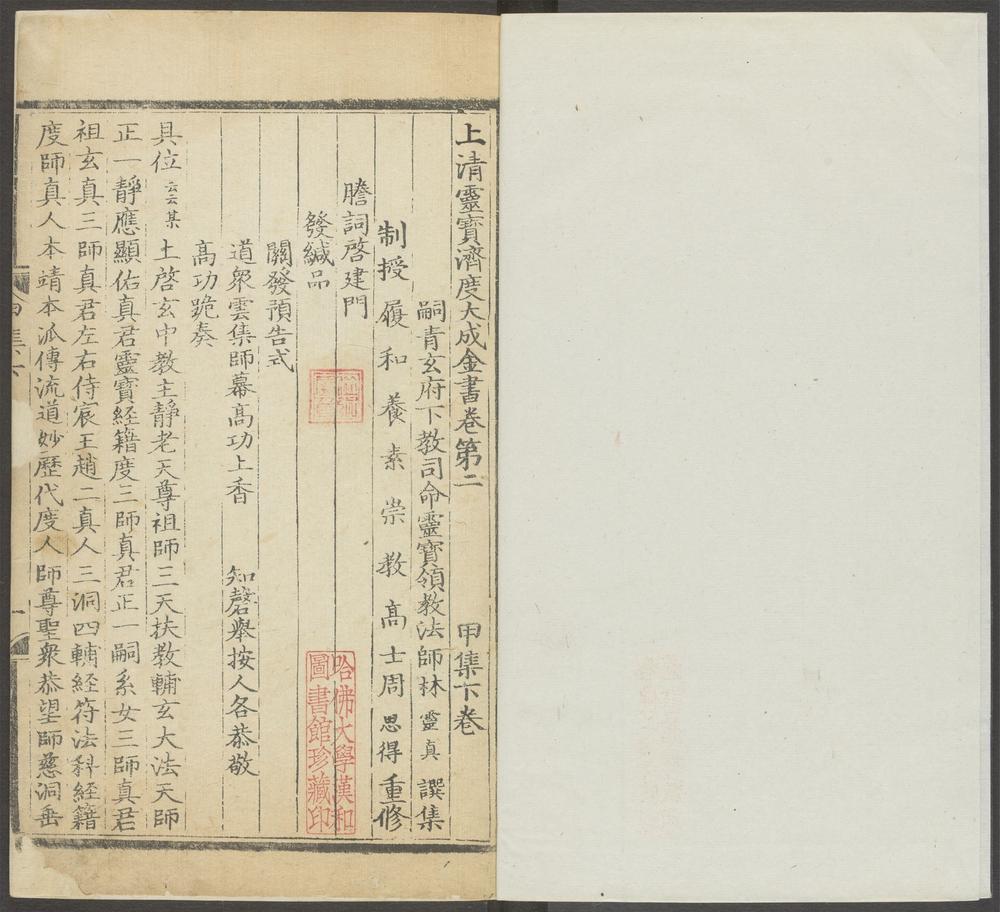 上清靈寶濟度大成金書卷第二 甲集下卷
嗣青玄府下教司命靈寶領教法師林靈真 譔集
制授履和養素崇教高士周思得重修
謄詞啓建門
發緘品
關發預告式
道衆雲集師幕高功上香 知磬舉按人各恭敬
高功跪奏
具位云云某 上啓玄中教主靜老天尊祖師三天扶教輔玄大法天師
正一靜應顯佑真君靈寶經籍度三師真君正一嗣系女三師真君
祖玄真三師真君左右侍宸王趙二真人三洞四輔經符法科經籍
度師真人本靖本派傳流道妙歷代度人師尊聖衆恭望師慈洞垂
哈佛大學漢和
圖書館珍藏印